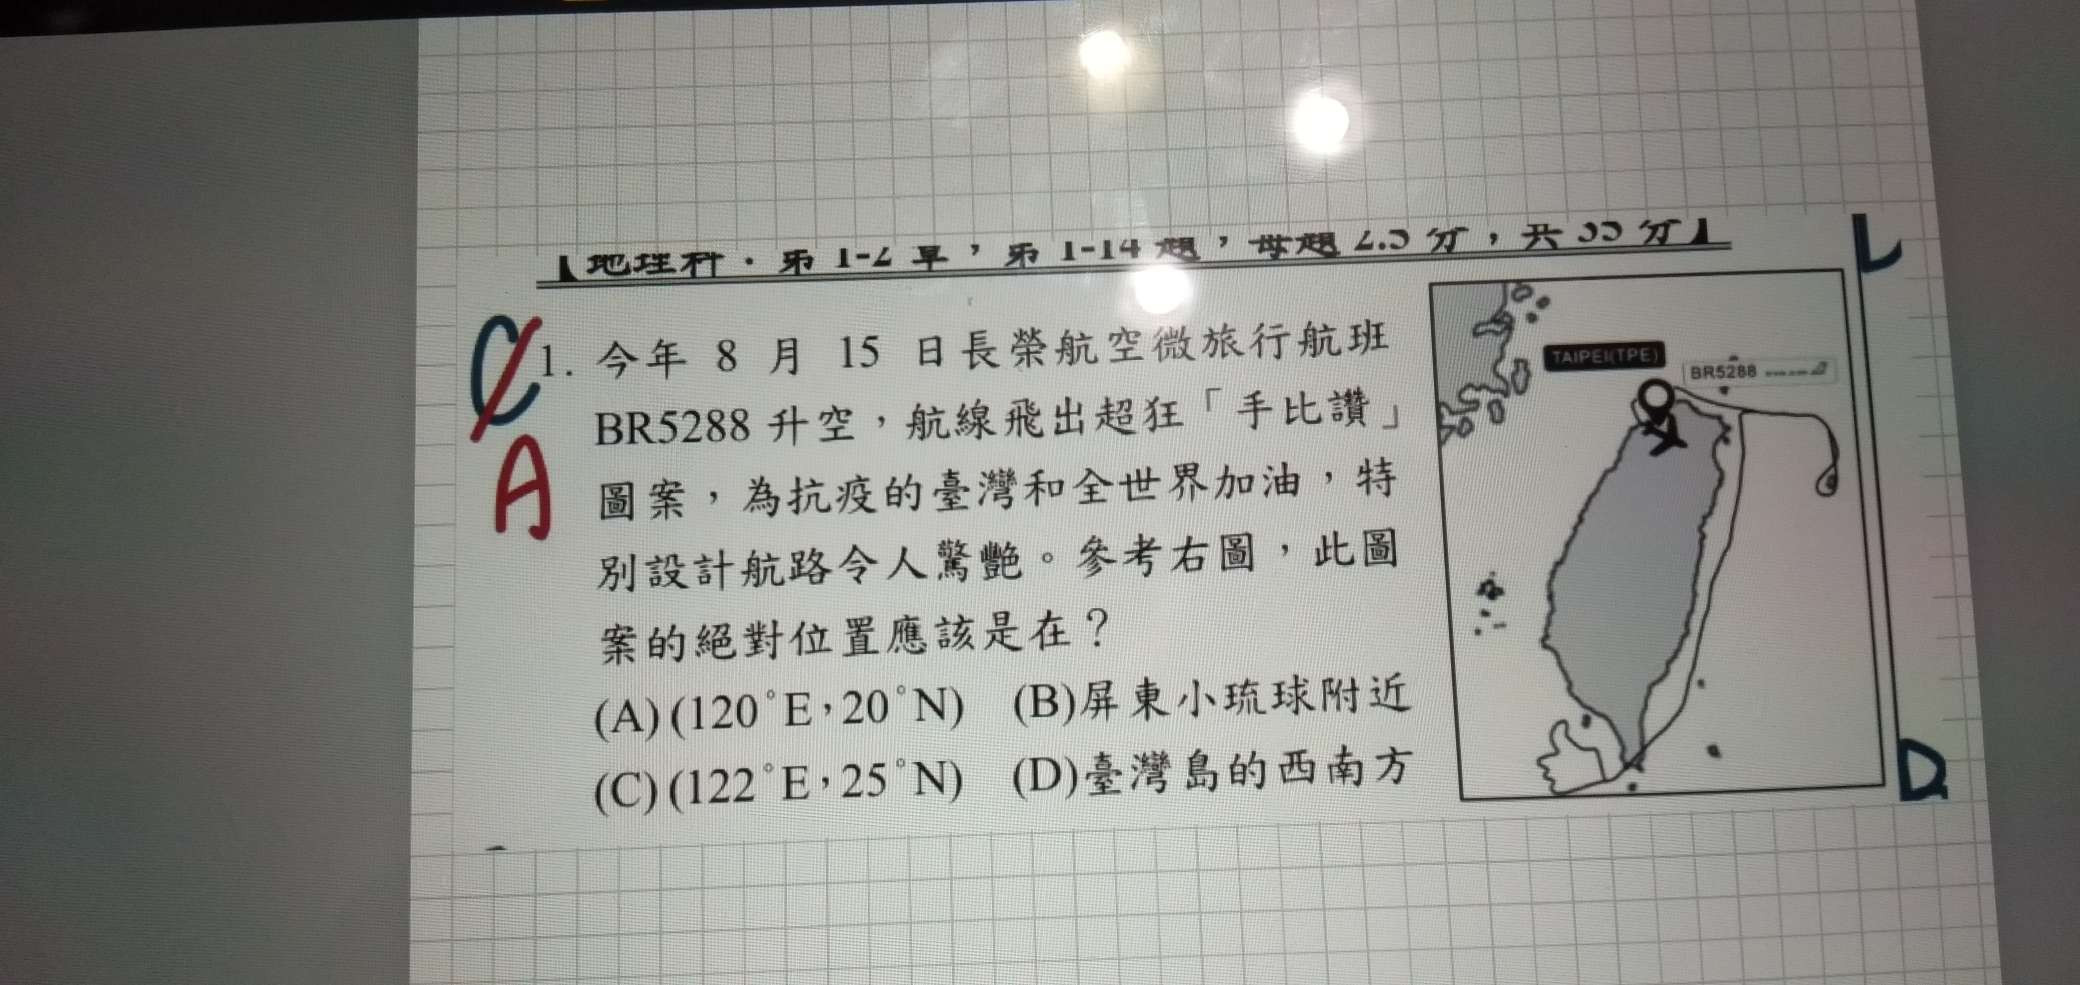 【地理科．第 1-2 章，第 1-14 題，每題 2.5 分，共 35 分】
C
A
1. 今年 8 月 15 日長榮航空微旅行航班
BR5288 升空，航線飛出超狂「手比讚」
圖案，為抗疫的臺灣和全世界加油，特
別設計航路令人驚艷。參考右圖，此圖
案的絕對位置應該是在？
(A)(120°E，20°N) (B)屏東小琉球附近
(C)(122°E，25°N) (D)臺灣島的西南方
TAIPEI(TPE)
BR5288
D